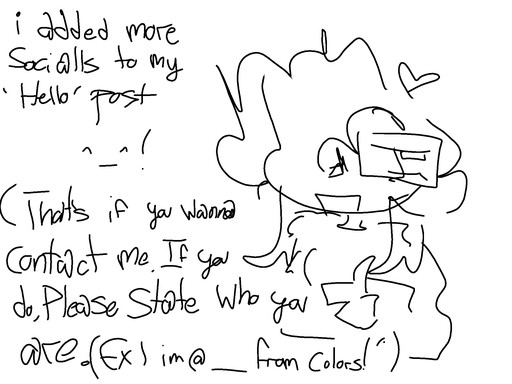 i added more
Socialls to my
'Hello' post
^_^!
(That's if you wanna
contact me. If you
do, Please State who you
are. (Ex) im @ __ from Colors!")